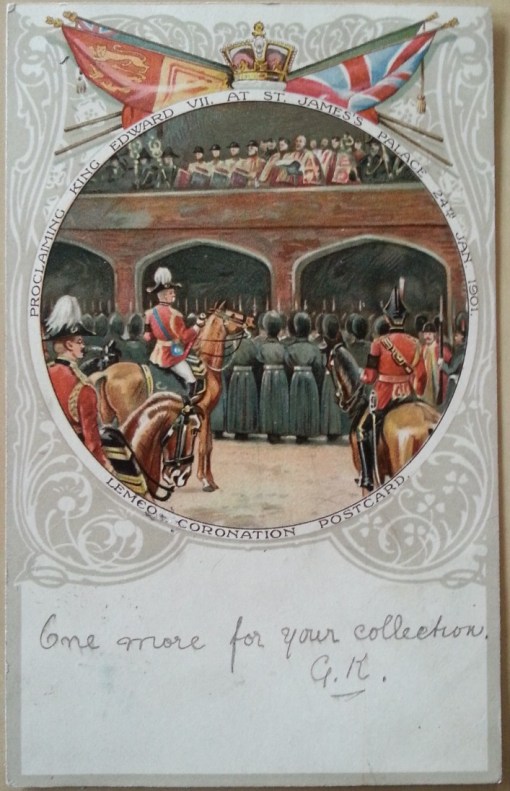 PROCLAIMING KING EDWARD VII. AT ST. JAMES'S PALACE 24TH JAN 1901.
LEMCO CORONATION POSTCARD.
One more for your collection.
G.K.